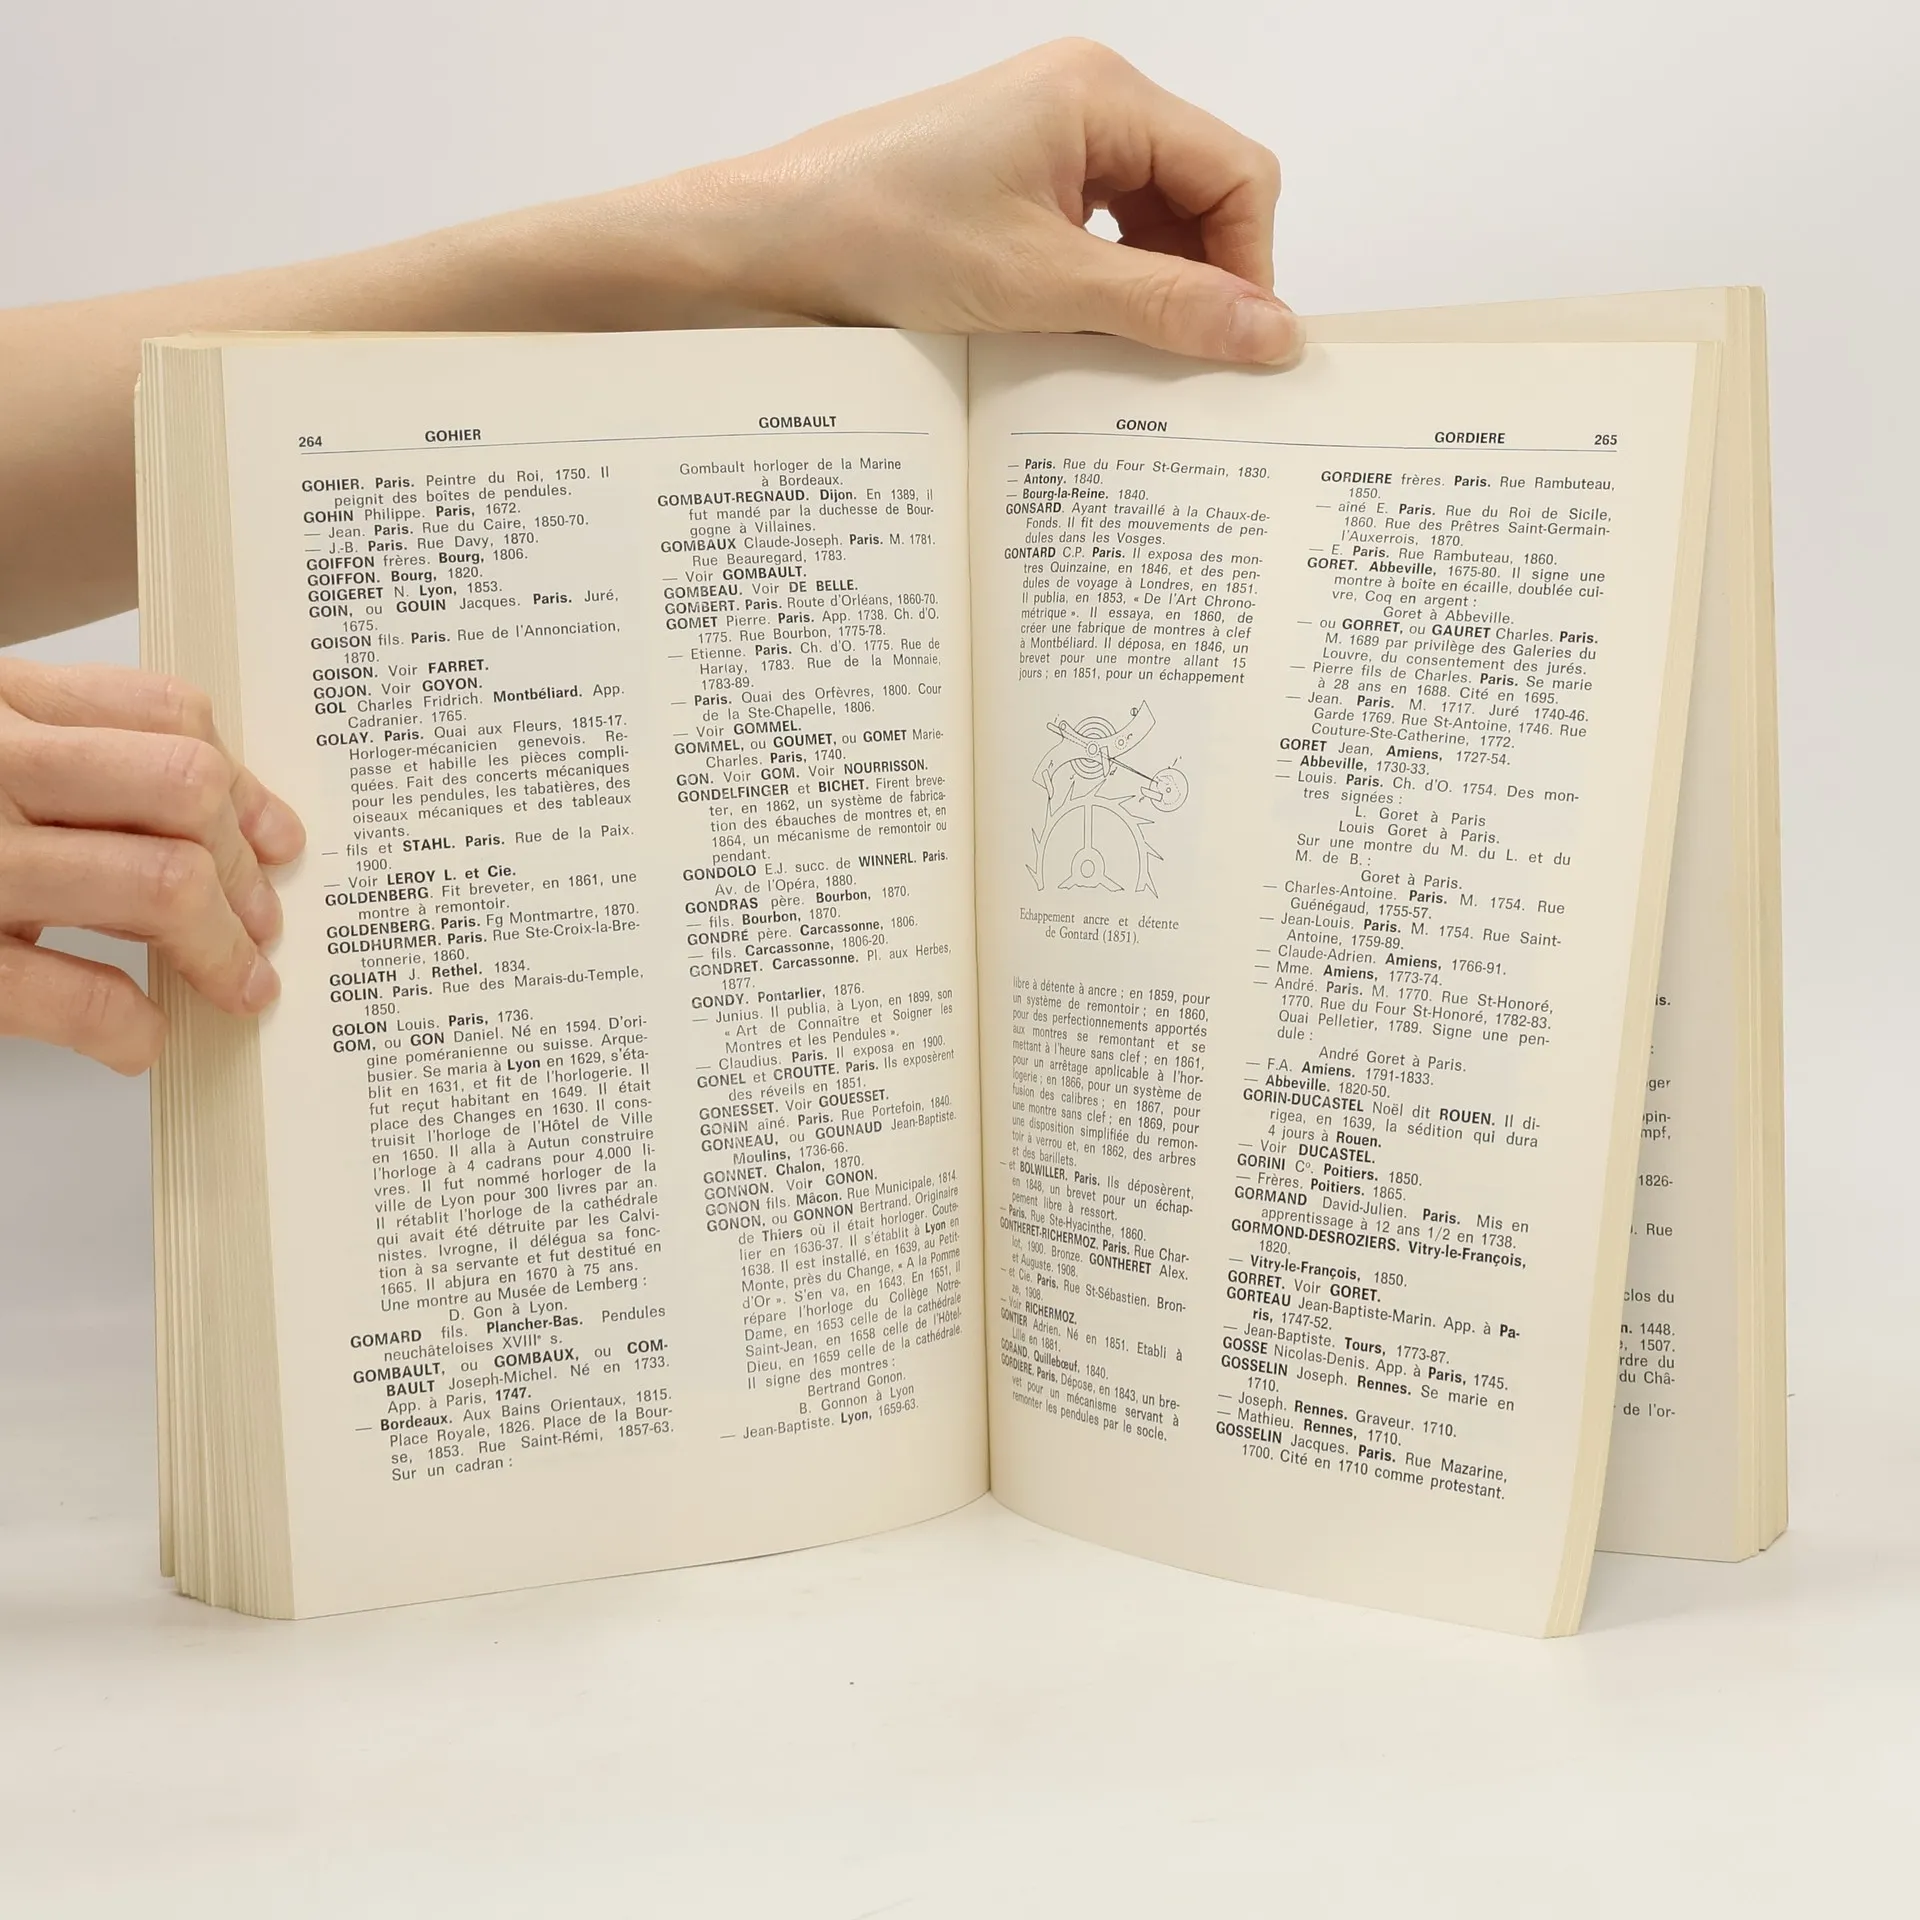 264 GOHIER GOMBAULT
GOHIER. Paris. Peintre du Roi, 1750. Il
peignit des boîtes de pendules.
GOHIN Philippe. Paris, 1672.
— Jean. Paris. Rue du Caire, 1850-70.
— J.-B. Paris. Rue Davy, 1870.
GOIFFON frères. Bourg, 1806.
GOIFFON. Bourg, 1820.
GOIGERET N. Lyon, 1853.
GOIN, ou GOUIN Jacques. Paris. Juré,
1675.
GOISON fils. Paris. Rue de l'Annonciation,
1870.
GOISON. Voir FARRET.
GOJON. Voir GOYON.
GOL Charles Fridrich. Montbéliard. App.
Cadranier. 1765.
GOLAY. Paris. Quai aux Fleurs, 1815-17.
Horloger-mécanicien genevois. Re-
passe et habille les pièces compli-
quées. Fait des concerts mécaniques
pour les pendules, les tabatières, des
oiseaux mécaniques et des tableaux
vivants.
— fils et STAHL. Paris. Rue de la Paix.
1900.
— Voir LEROY L. et Cie.
GOLDENBERG. Fit breveter, en 1861, une
montre à remontoir.
GOLDENBERG. Paris. Fg Montmartre, 1870.
GOLDHURMER. Paris. Rue Ste-Croix-la-Bre-
tonnerie, 1860.
GOLIATH J. Rethel. 1834.
GOLIN. Paris. Rue des Marais-du-Temple,
1850.
GOLON Louis. Paris, 1736.
GOM, ou GON Daniel. Né en 1594. D'ori-
gine poméranienne ou suisse. Arque-
busier. Se maria à Lyon en 1629, s'éta-
blit en 1631, et fit de l'horlogerie. Il
fut reçut habitant en 1649. Il était
place des Changes en 1630. Il cons-
truisit l'horloge de l'Hôtel de Ville
en 1650. Il alla à Autun construire
l'horloge à 4 cadrans pour 4.000 li-
vres. Il fut nommé horloger de la
ville de Lyon pour 300 livres par an.
Il rétablit l'horloge de la cathédrale
qui avait été détruite par les Calvi-
nistes. Ivrogne, il délégua sa fonc-
tion à sa servante et fut destitué en
1665. Il abjura en 1670 à 75 ans.
Une montre au Musée de Lemberg :
D. Gon à Lyon.
GOMARD fils. Plancher-Bas. Pendules
neuchâteloises XVIIIe s.
GOMBAULT, ou GOMBAUX, ou COM-
BAULT Joseph-Michel. Né en 1733.
App. à Paris, 1747.
— Bordeaux. Aux Bains Orientaux, 1815.
Place Royale, 1826. Place de la Bour-
se, 1853. Rue Saint-Rémi, 1857-63.
Sur un cadran :
Gombault horloger de la Marine
à Bordeaux.
GOMBAUT-REGNAUD. Dijon. En 1389, il
fut mandé par la duchesse de Bour-
gogne à Villaines.
GOMBAUX Claude-Joseph. Paris. M. 1781.
Rue Beauregard, 1783.
— Voir GOMBAULT.
GOMBEAU. Voir DE BELLE.
GOMBERT. Paris. Route d'Orléans, 1860-70.
GOMET Pierre. Paris. App. 1738. Ch. d'O.
1775. Rue Bourbon, 1775-78.
— Etienne. Paris. Ch. d'O. 1775. Rue de
Harlay, 1783. Rue de la Monnaie,
1783-89.
— Paris. Quai des Orfèvres, 1800. Cour
de la Ste-Chapelle, 1806.
— Voir GOMMEL.
GOMMEL, ou GOUMET, ou GOMET Marie-
Charles. Paris, 1740.
GON. Voir GOM. Voir NOURRISSON.
GONDELFINGER et BICHET. Firent breve-
ter, en 1862, un système de fabrica-
tion des ébauches de montres et, en
1864, un mécanisme de remontoir ou
pendant.
GONDOLO E.J. succ. de WINNERL. Paris.
Av. de l'Opéra, 1880.
GONDRAS père. Bourbon, 1870.
— fils. Bourbon, 1870.
GONDRÉ père. Carcassonne, 1806.
— fils. Carcassonne, 1806-20.
GONDRET. Carcassonne. Pl. aux Herbes,
1877.
GONDY. Pontarlier, 1876.
— Junius. Il publia, à Lyon, en 1899, son
« Art de Connaître et Soigner les
Montres et les Pendules ».
— Claudius. Paris. Il exposa en 1900.
GONEL et CROUTTE. Paris. Ils exposèrent
des réveils en 1851.
GONESSET. Voir GOUESSET.
GONIN aîné. Paris. Rue Portefoin, 1840.
GONNEAU, ou GOUNAUD Jean-Baptiste.
Moulins, 1736-66.
GONNET. Chalon, 1870.
GONNON. Voir GONON.
GONON fils. Mâcon. Rue Municipale, 1814
GONON, ou GONNON Bertrand. Originaire
de Thiers où il était horloger. Coute-
lier en 1636-37. Il s'établit à Lyon en
1638. Il est installé, en 1639, au Petit-
Monte, près du Change, « A la Pomme
d'Or ». S'en va, en 1643. En 1651, il
répare l'horloge du Collège Notre-
Dame, en 1653 celle de la cathédrale
Saint-Jean, en 1658 celle de l'Hôtel-
Dieu, en 1659 celle de la cathédrale.
Il signe des montres :
Bertrand Gonon.
B. Gonnon à Lyon
— Jean-Baptiste. Lyon, 1659-63.
GONON GORDIERE 265
— Paris. Rue du Four St-Germain, 1830.
— Antony. 1840.
— Bourg-la-Reine. 1840.
GONSARD. Ayant travaillé à la Chaux-de-
Fonds. Il fit des mouvements de pen-
dules dans les Vosges.
GONTARD C.P. Paris. Il exposa des mon-
tres Quinzaine, en 1846, et des pen-
dules de voyage à Londres, en 1851.
Il publia, en 1853, « De l'Art Chrono-
métrique ». Il essaya, en 1860, de
créer une fabrique de montres à clef
à Montbéliard. Il déposa, en 1846, un
brevet pour une montre allant 15
jours ; en 1851, pour un échappement
Echappement ancre et détente
de Gontard (1851).
libre à détente à ancre ; en 1859, pour
un système de remontoir ; en 1860,
pour des perfectionnements apportés
aux montres se remontant et se
mettant à l'heure sans clef ; en 1861,
pour un arrêtage applicable à l'hor-
logerie ; en 1866, pour un système de
fusion des calibres ; en 1867, pour
une montre sans clef ; en 1869, pour
une disposition simplifiée du remon-
toir à verrou et, en 1862, des arbres
et des barillets.
— et BOLWILLER. Paris. Ils déposèrent,
en 1848, un brevet pour un échap-
pement libre à ressort.
— Paris. Rue Ste-Hyacinthe, 1860.
GONTHERET-RICHERMOZ. Paris. Rue Char-
lot, 1900. Bronze. GONTHERET Alex.
et Auguste, 1908.
— et Cie. Paris. Rue St-Sébastien. Bron-
ze, 1908.
— Voir RICHERMOZ.
GONTIER Adrien. Né en 1851. Etabli à
Lille en 1881.
GORAND. Quillebœuf, 1840.
GORDIERE. Paris. Dépose, en 1843, un bre-
vet pour un mécanisme servant à
remonter les pendules par le socle.
GORDIERE frères. Paris. Rue Rambuteau,
1850.
— aîné E. Paris. Rue du Roi de Sicile,
1860. Rue des Prêtres Saint-Germain-
l'Auxerrois, 1870.
— E. Paris. Rue Rambuteau, 1860.
GORET. Abbeville, 1675-80. Il signe une
montre à boîte en écaille, doublée cui-
vre, Coq en argent :
Goret à Abbeville.
— ou GORRET, ou GAURET Charles. Paris.
M. 1689 par privilège des Galeries du
Louvre, du consentement des jurés.
— Pierre fils de Charles. Paris. Se marie
à 28 ans en 1688. Cité en 1695.
— Jean. Paris. M. 1717. Juré 1740-46.
Garde 1769. Rue St-Antoine, 1746. Rue
Couture-Ste-Catherine, 1772.
GORET Jean. Amiens, 1727-54.
— Abbeville, 1730-33.
— Louis. Paris. Ch. d'O. 1754. Des mon-
tres signées :
L. Goret à Paris
Louis Goret à Paris.
Sur une montre du M. du L. et du
M. de B. :
Goret à Paris.
— Charles-Antoine. Paris. M. 1754. Rue
Guénégaud, 1755-57.
— Jean-Louis. Paris. M. 1754. Rue Saint-
Antoine, 1759-89.
— Claude-Adrien. Amiens, 1766-91.
— Mme. Amiens, 1773-74.
— André. Paris. M. 1770. Rue St-Honoré,
1770. Rue du Four St-Honoré, 1782-83.
Quai Pelletier, 1789. Signe une pen-
dule :
André Goret à Paris.
— F.A. Amiens. 1791-1833.
— Abbeville. 1820-50.
GORIN-DUCASTEL Noël dit ROUEN. Il di-
rigea, en 1639, la sédition qui dura
4 jours à Rouen.
— Voir DUCASTEL.
GORINI Co. Poitiers. 1850.
— Frères. Poitiers. 1865.
GORMAND David-Julien. Paris. Mis en
apprentissage à 12 ans 1/2 en 1738.
GORMOND-DESROZIERS. Vitry-le-François,
1820.
— Vitry-le-François, 1850.
GORRET. Voir GORET.
GORTEAU Jean-Baptiste-Marin. App. à Pa-
ris, 1747-52.
— Jean-Baptiste. Tours, 1773-87.
GOSSE Nicolas-Denis. App. à Paris, 1745.
GOSSELIN Joseph. Rennes. Se marie en
1710.
— Joseph. Rennes. Graveur. 1710.
— Mathieu. Rennes, 1710.
GOSSELIN Jacques. Paris. Rue Mazarine,
1700. Cité en 1710 comme protestant.
is.
:
ger
pin-
mpf,
1826-
. Rue
clos du
n. 1448.
, 1507.
rdre du
du Châ-
de l'or-